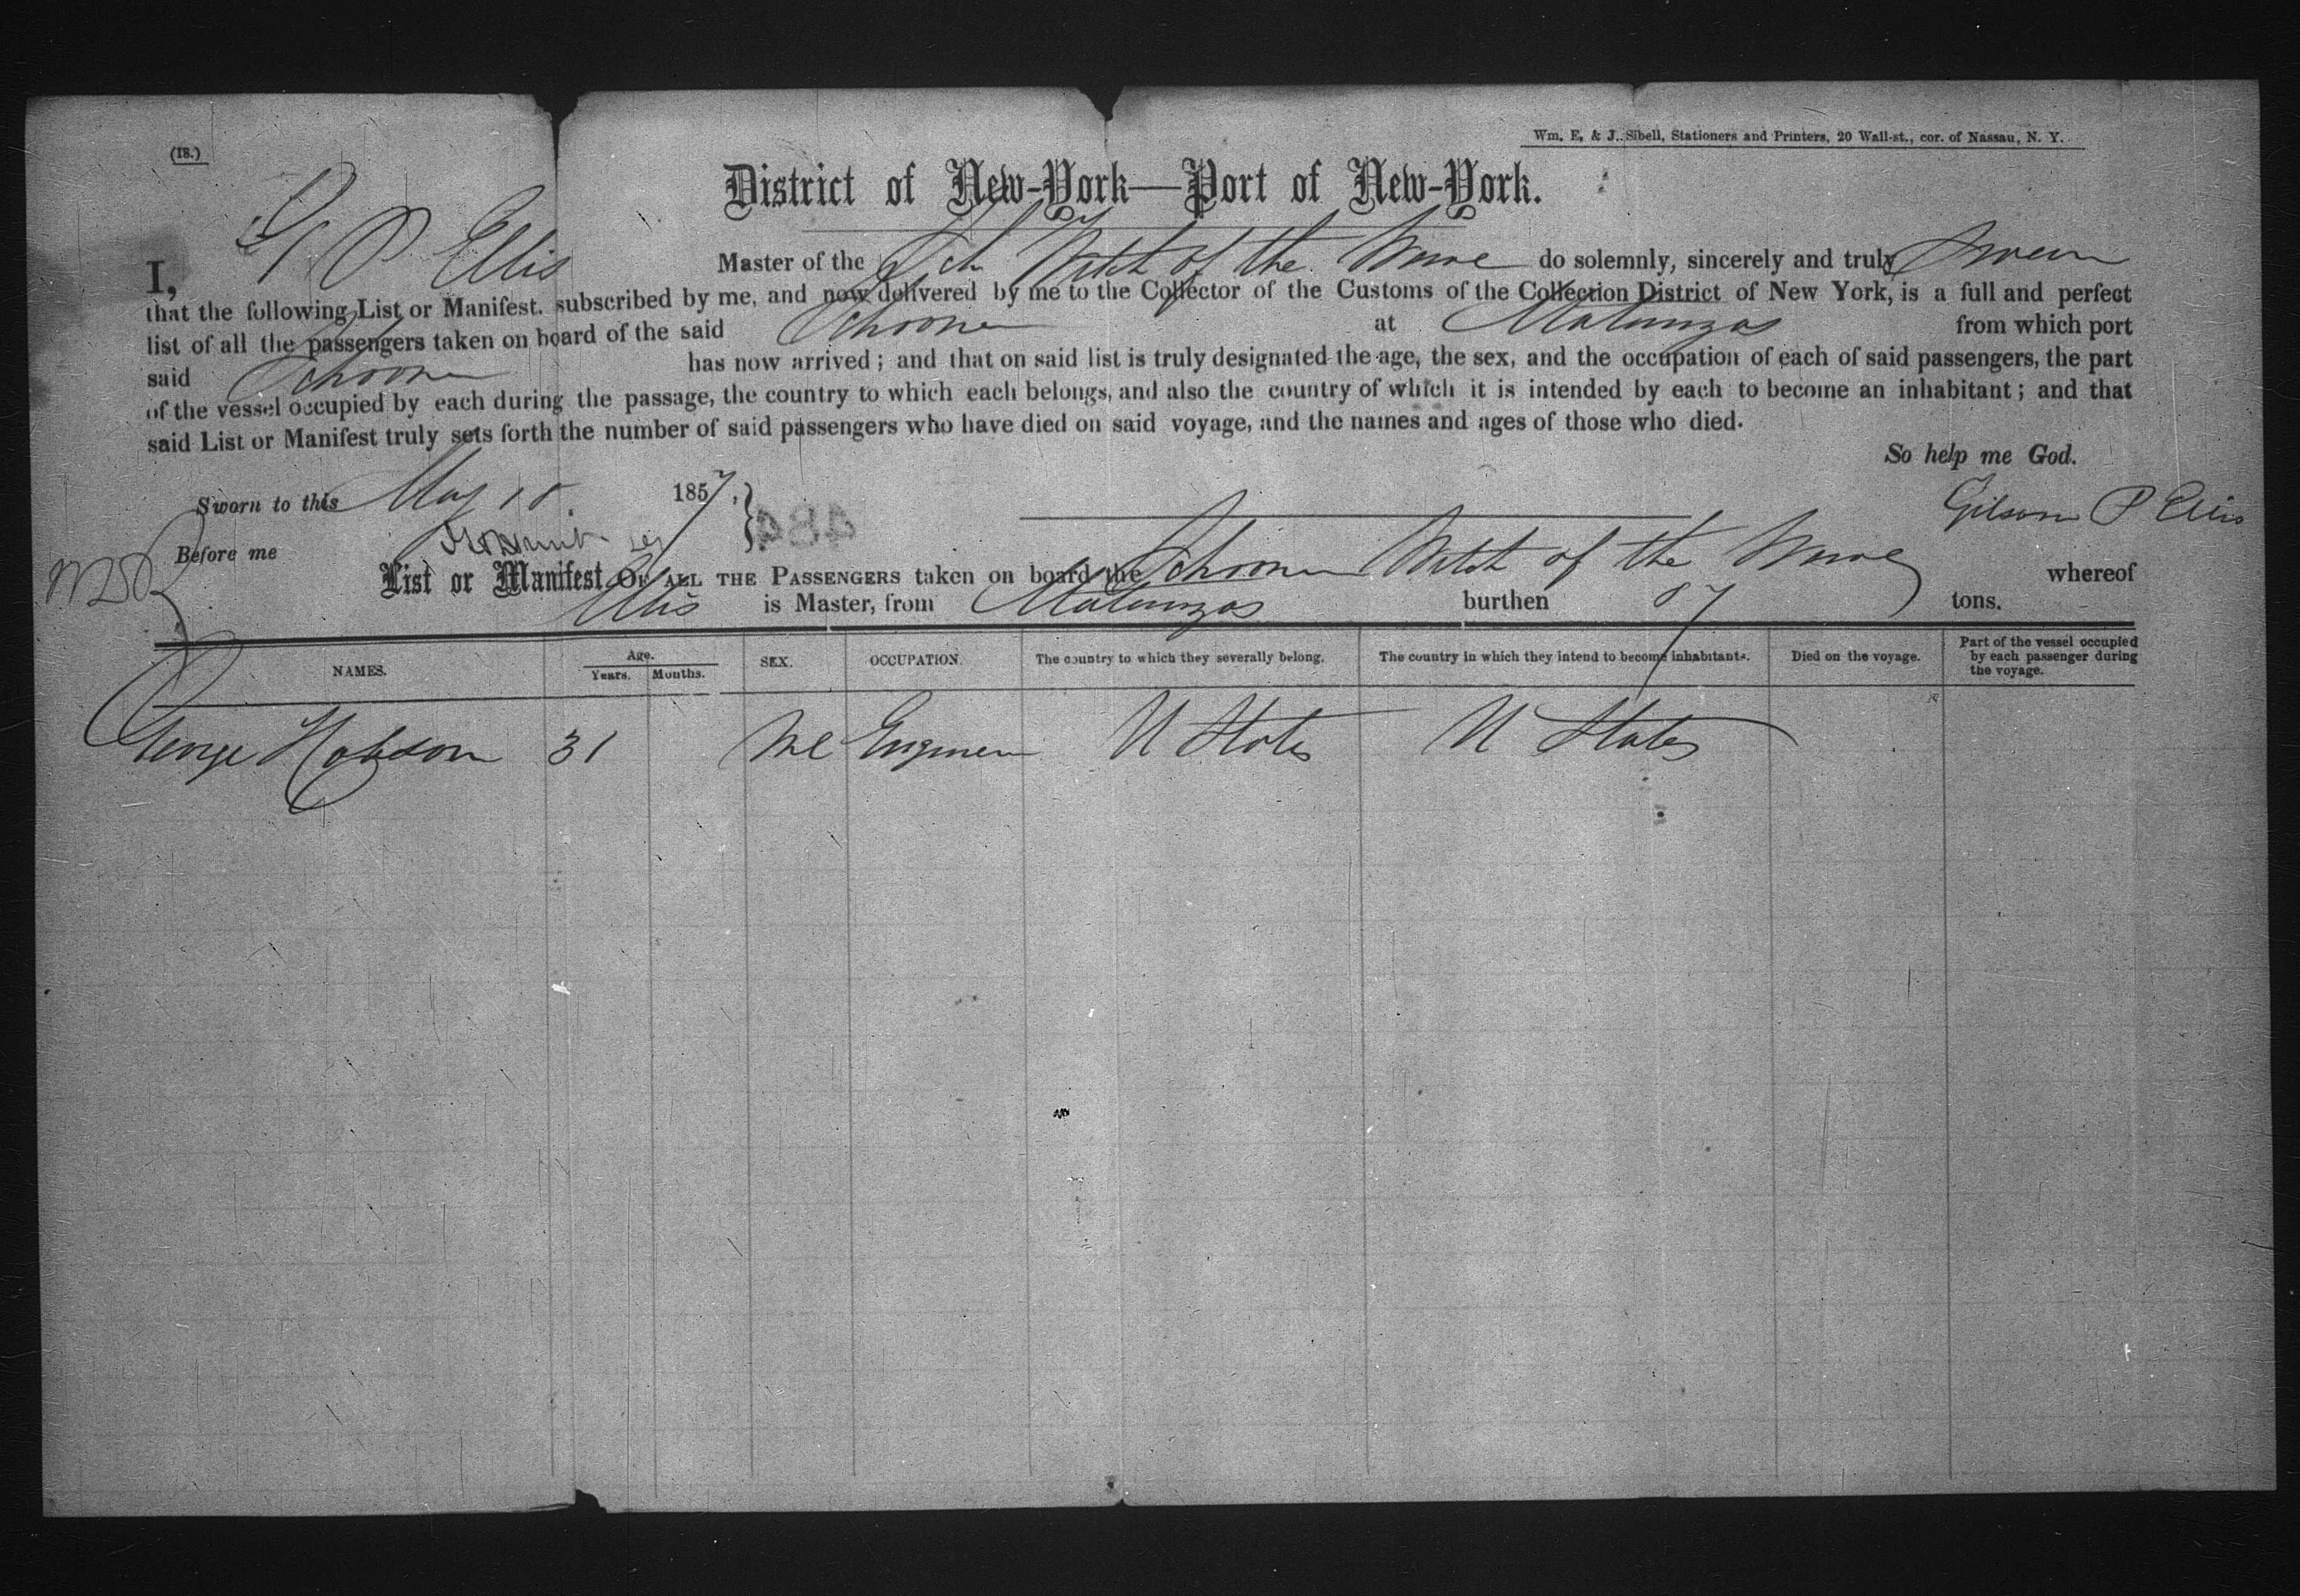 (18.)
Wm. E. & J. Sibell, Stationers and Printers, 20 Wall-st., cor. of Nassau, N. Y.
District of New-York—Port of New-York.
I, G P Ellis Master of the Sch Witch of the Wave do solemnly, sincerely and truly Swear
that the following List or Manifest. subscribed by me, and now delivered by me to the Collector of the Customs of the Collection District of New York, is a full and perfect
list of all the passengers taken on board of the said Schooner at Matanzas from which port
said Schooner has now arrived; and that on said list is truly designated the age, the sex, and the occupation of each of said passengers, the part
of the vessel occupied by each during the passage, the country to which each belongs, and also the country of which it is intended by each to become an inhabitant; and that
said List or Manifest truly sets forth the number of said passengers who have died on said voyage, and the names and ages of those who died.
So help me God.
Sworn to this May 18. 1857,
Gilson P Ellis
Before me
484
List or Manifest OF ALL THE PASSENGERS taken on board the Schooner Witch of the Wave whereof
Ellis is Master, from Matanzas burthen 87 tons.
NAMES. Age. Years. Months. SEX. OCCUPATION. The country to which they severally belong. The country in which they intend to become inhabitants. Died on the voyage. Part of the vessel occupied by each passenger during the voyage.
George Hobson 31 Ml Engineer U States U States